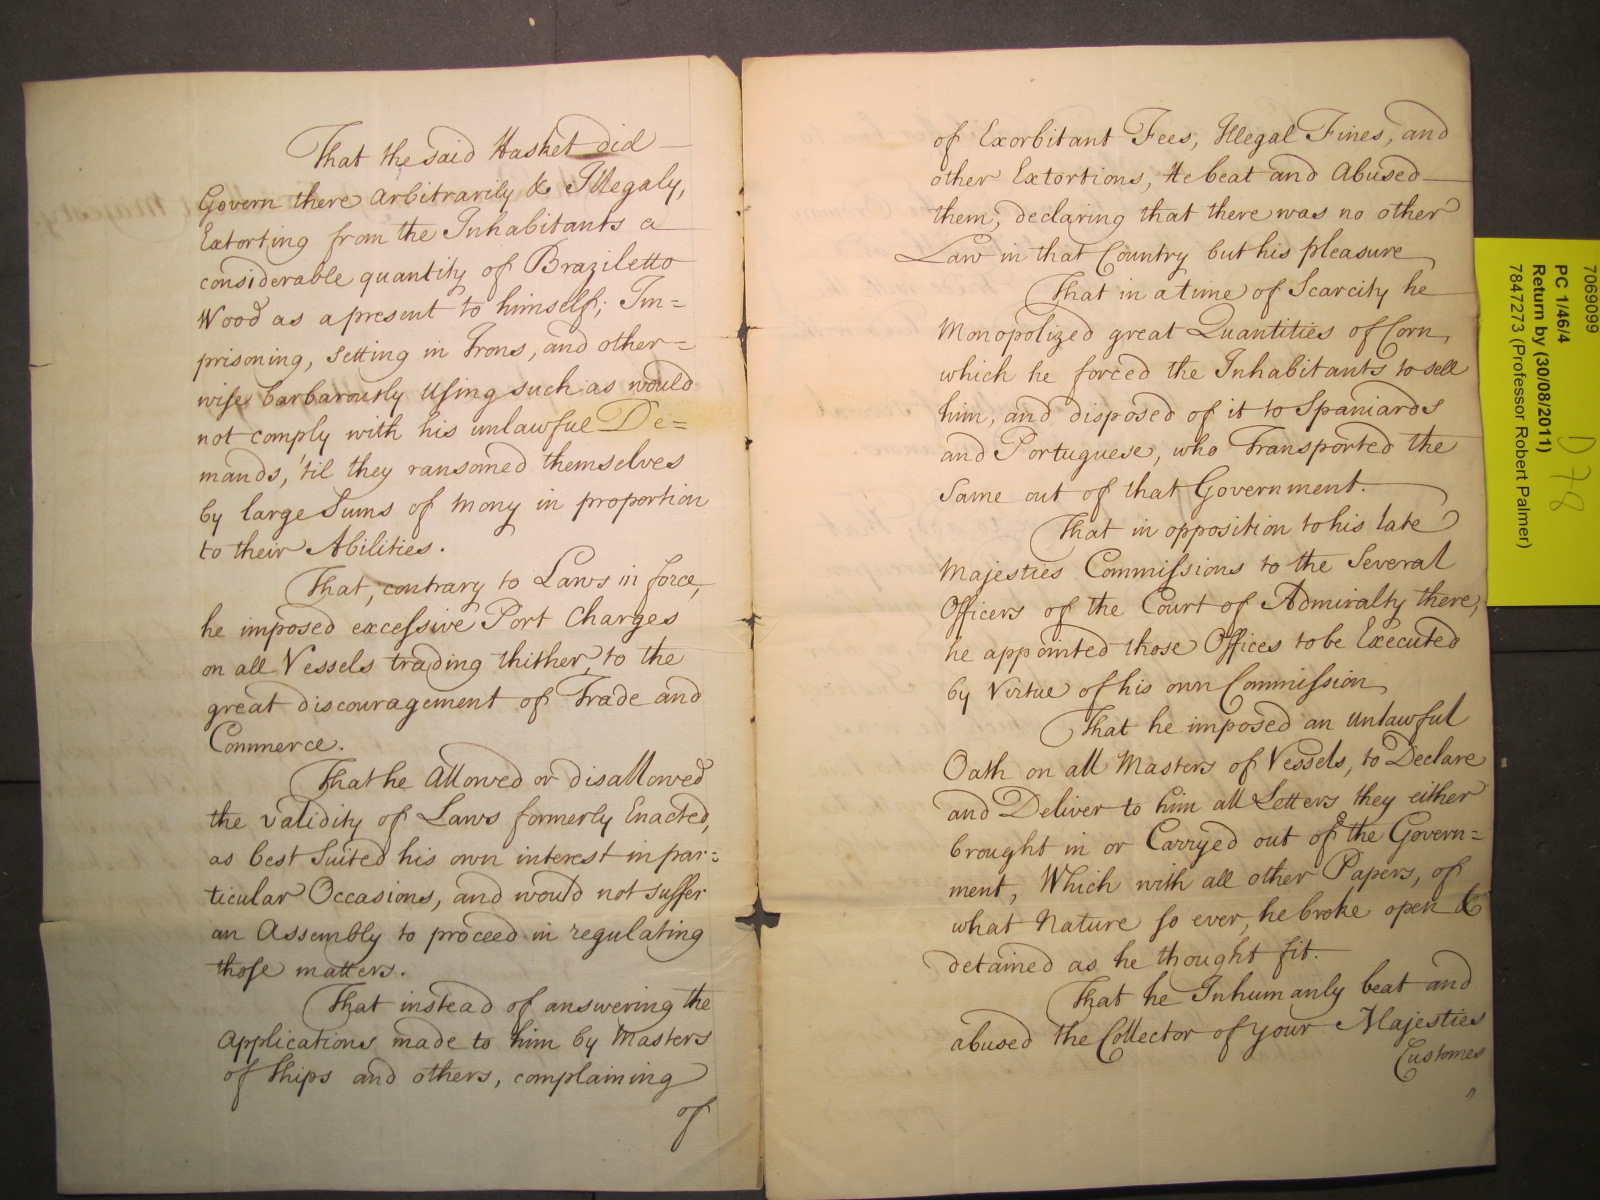 That the said Hasket did
Govern there arbitrarily & Illegaly,
Extorting from the Inhabitants a
considerable quantity of Braziletto
Wood as a present to himself; Im=
prisoning, setting in Irons, and other=
wise barbarously Using such as would
not comply with his unlawful De=
mands, 'til they ransomed themselves
by large Sums of mony in proportion
to their Abilities.
That, contrary to Laws in force,
he imposed excessive Port Charges
on all Vessels trading thither, to the
great discouragement of Trade and
Commerce.
That he Allowed or disallowed
the validity of Laws formerly Enacted,
as best Suited his own interest in par=
ticular Occasions, and would not suffer
an Assembly to proceed in regulating
those matters.
That instead of answering the
Applications made to him by Masters
of Ships and others, complaining
of
of Exorbitant Fees, Illegal Fines, and
other Extortions, He beat and Abused
them, declaring that there was no other
Law in that Country but his pleasure
That in a time of Scarcity he
Monopolized great Quantities of Corn,
which he forced the Inhabitants to sell
him, and disposed of it to Spaniards
and Portuguese, who Transported the
Same out of that Government.
That in opposition to his late
Majesties Commissions to the Several
Officers of the Court of Admiralty there,
he appointed those Offices to be Executed
by Virtue of his own Commission
That he imposed an Unlawful
Oath on all Masters of Vessels, to Declare
and Deliver to him all Letters they either
brought in or Carryed out of the Govern=
ment, Which with all other Papers, of
what Nature so ever, he broke open &
detained as he thought fit.
That he Inhumanly beat and
abused the Collector of your Majesties
Customes
7069099
PC 1/46/4
Return by (30/08/2011)
7847273 (Professor Robert Palmer)
D 78